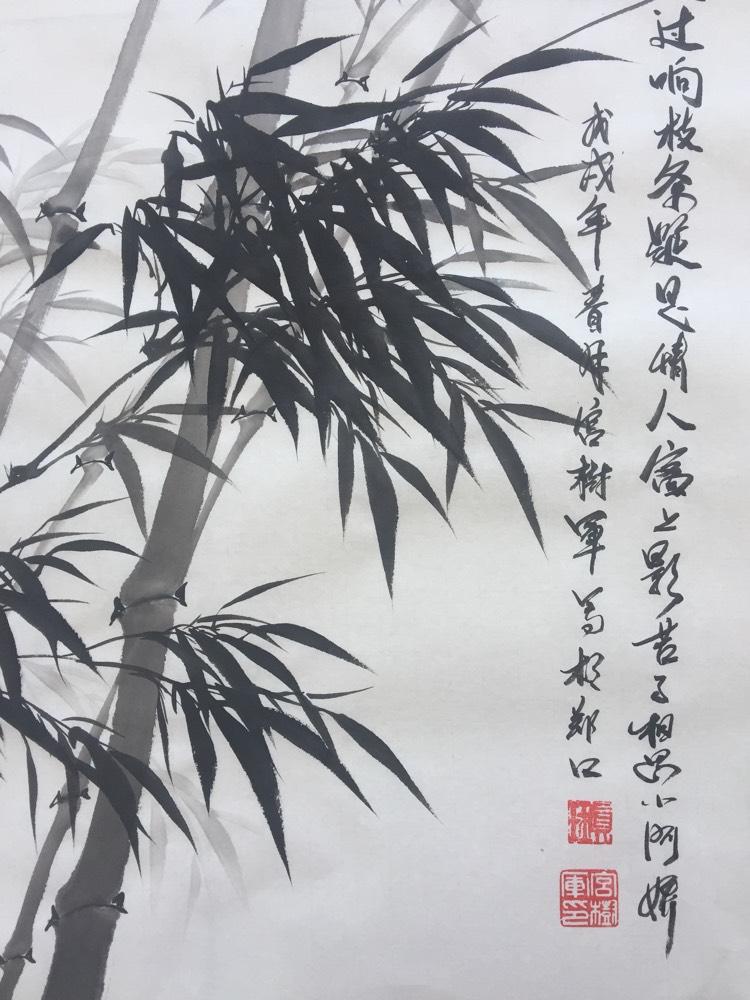 过响枝条疑是情人窗上影苦了相思小阿娇
戊戌年春月宫树军写於郑口
宮樹軍印